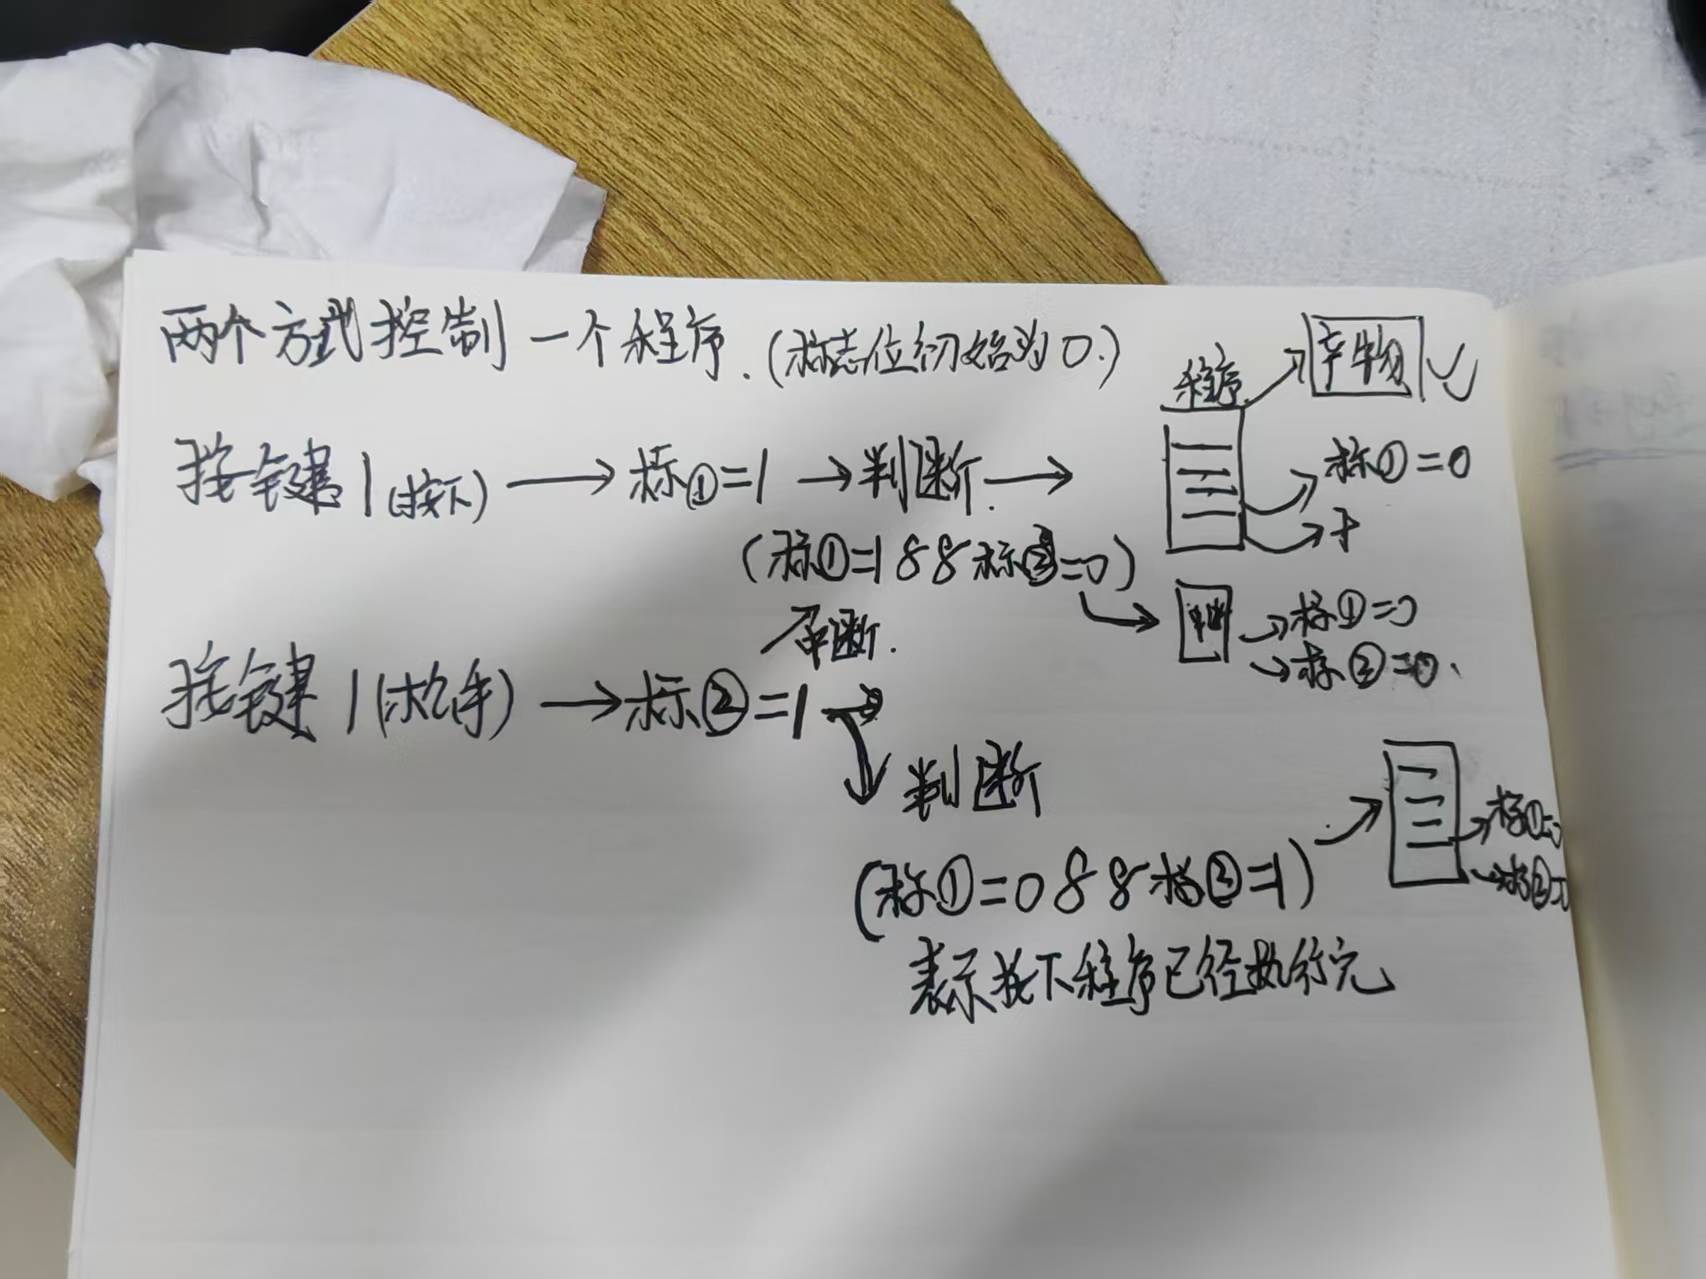 两个方式控制一个程序.(标志位初始为0.)
程序
产物
按键1(按下) → 标①=1 → 判断. →
标①=0
(标①=1&&标②=0)
判断.
判断
标①=0
标②=0.
按键1(松手) → 标②=1
判断
(标①=0&&标②=1)
标①=0
标②=0
表示按下程序已经执行完